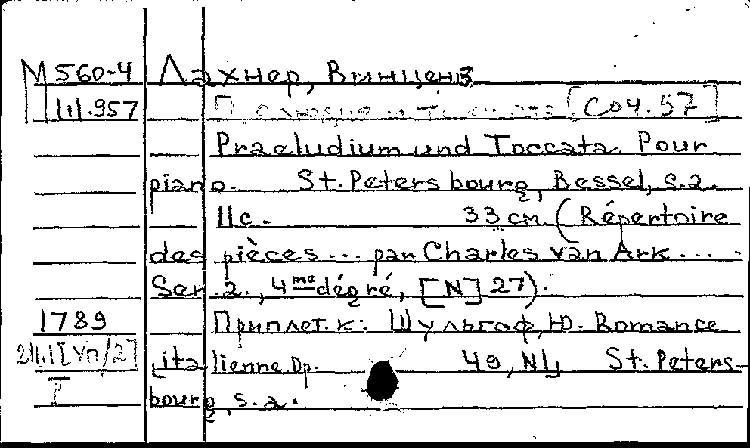 М 560-4 Лахнер, Винценз
111.957 Прелюдия и токката [Соч. 57]
Praeludium und Toccata. Pour
piano. St. Petersbourg, Bessel, s.a.
11с. 33 cm. (Répertoire
des pièces... par Charles van Ark...
Ser. 2., 4me dégré, [N] 27).
1789 Приплет. к: Шульгоф, Ю. Romance
ita lienne Op. 49, N1, St. Peters-
bourg, s.a.